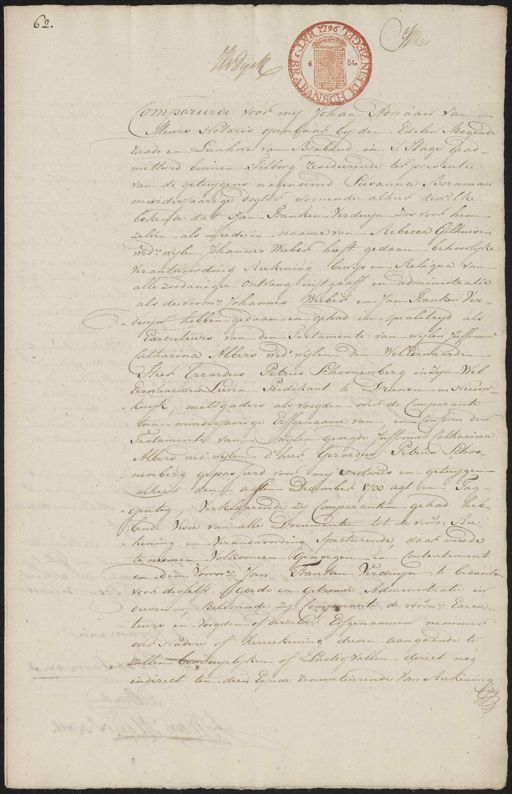 62.
BRABANSCH KLEIN ZEGEL
1796
6 St.
Compareerde voor mij Johan Adriaan van
Meurs Notaris openbaar bij den Edelen Mogende
Raade en Leenhove van Braband in S'Hage gead-
mitteerd binnen Tilborg resideerende ter presentie
van de getuygens naargenoemd Susanna Bornman
meerderjaarige dogter woonende alhier dewelke
bekende dat Jan Franken Verduyn zoo voor hem
zelven als mede in naame van Rebecca
wedᵉ wylen Johannes Weber heeft gedaan behoorlyke
Verantwoording Rekening bewys en Reliqua van
alle zoodanigen Ontvang uytgaaff en administratie
als de voornᵉ Johannes Weber en Jan Franken Ver-
duyn hebben gedaan en gehad in qualiteyd als
Executeurs van den Testamente van wylen Juffrouw
Catharina Albers wedᵉ wylen den WelEerwaarden
Heer Gerardus Petrus Schoonenberg in zyn Wel
Eerwaarden Leeven Predikant te Drunen en Nieuw-
kuyk, mitsgaders als voogden over de Comparante
minderjaarige Erfgenaame van en Conform den
Testamente van wylen gezegde Juffrouw Catharina
Albers wedᵉ wylen d'heer Gerardus Petrus Schoo-
nenberg gepasseerd voor my Notaris en getuygen
alhier den December 1700 agt en
Negentig, Verklaarende zy Comparante gehad heb-
bende Visie van alle Documenten tot de voors. Re-
kening en Verandwoording Specteerende, daar mede
te neemen Volkoomen Genoegen en Contentement
en den Voornᵉ Jan Franken Verduyn te bedanken
voor deszelfs goede en getrouwe Administratie in
deesen, Beloovende zy Comparante de voorn. Execu-
teurs en Voogden of derzelver Erfgenaamen nimmer
over nadere of Herrekening deesen aangaande te
zullen bemoeyelyken of Lastig vallen direct nog
indirect ten dien Eynde renuntieerende van Rekening